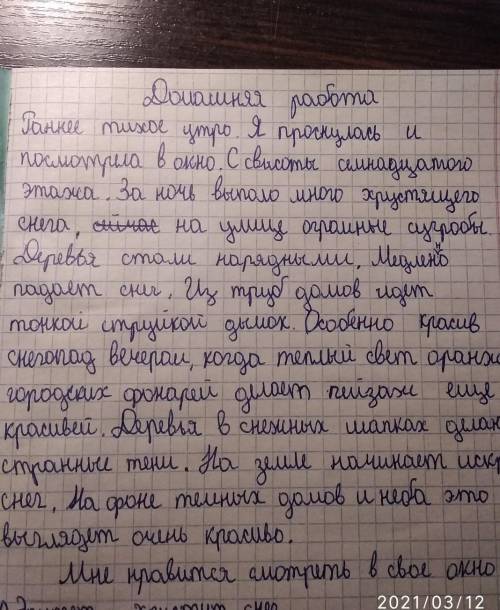 Домашняя работа
Раннее тихое утро. Я проснулась и
посмотрела в окно. С свысоты семнадцатого
этажа. За ночь выпало много хрустящего
снега, сийчас на улице огромные сугробы.
Деревья стали нарядными. Медленно
падает снег. Из труб домов идет
тонкой струйкой дымок. Особенно красив
снегопад вечерам, когда теплый свет оранж
городских фонарей делает пейзаж еще
красивей. Деревья в снежных шапках делаю
странные тени. На земле начинает искр
снег. На фоне темных домов и неба это
выглядет очень красиво.
Мне нравится смотреть в свое окно
хрустит снег
2021/03/12